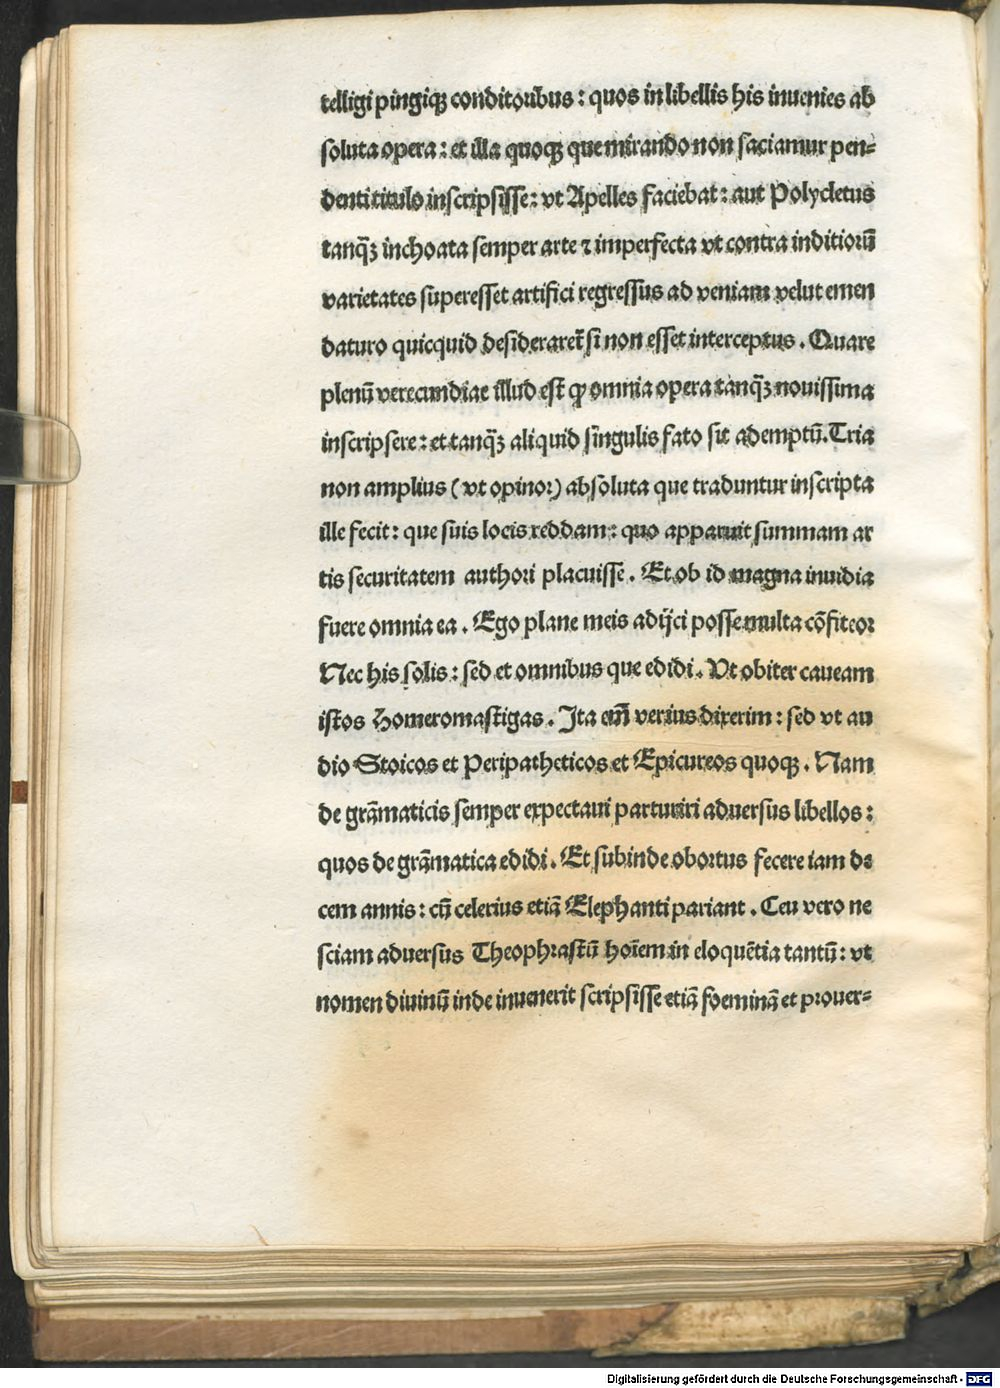 telligi pingiqꝫ conditoribus : quos in libellis his inuenies ab
soluta opera : et illa quoqꝫ que mirando non saciamur pen⸗
denti titulo inscripsisse : vt Apelles faciebat : aut Polycletus
tanq̃ꝫ inchoata semper arte ⁊ imperfecta vt contra inditiorū
varietates superesset artifici regressus ad veniam velut emen
daturo quicquid desideraret̃ si non esset interceptus . Quare
plenū verecundiae illud est ꝙ omnia opera tanq̃ꝫ nouissima
inscripsere : et tanq̃ꝫ aliquid singulis fato sit ademptū. Tria
non amplius ( vt opinor) absoluta que traduntur inscripta
ille fecit : que suis locis reddam : quo apparuit summam ar
tis securitatem authori placuisse . Et ob id magna inuidia
fuere omnia ea . Ego plane meis adijci posse multa cōfiteor
Nec his solis : sed et omnibus que edidi . Vt obiter caueam
istos Homeromastigas . Ita em̃ verius dixerim : sed vt au
dio Stoicos et Peripatheticos et Epicureos quoqꝫ . Nam
de grāmaticis semper expectaui parturiri aduersus libellos :
quos de grāmatica edidi . Et subinde obortus fecere iam de
cem annis : cū celerius etiā Elephanti pariant . Ceu vero ne
sciam aduersus Theophrastū hoīem in eloquētia tantū : vt
nomen diuinū inde inuenerit scripsisse etiā foeminā et prouer⸗
Digitalisierung gefördert durch die Deutsche Forschungsgemeinschaft - DFG